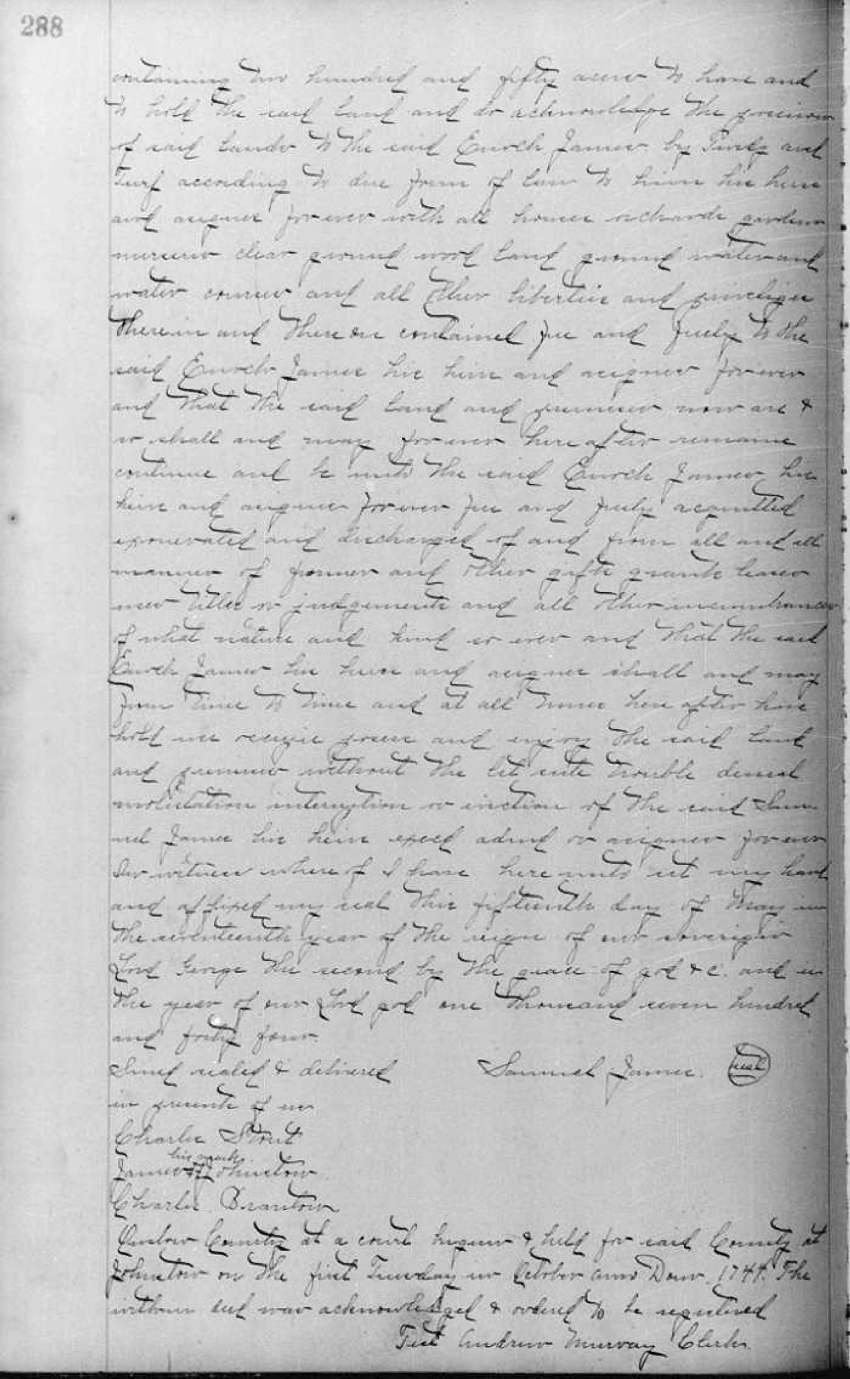 288
containing two hundred and fifty acers to have and
to hold the said land and do acknowledge the
of said lands to the said Enoch James by and
Turf according to due form of law to him his heirs
and asignes for ever with all houses orchards gardens
clear ground wood land ground water and
water courses and all other liberties and priveliges
therein and there on contained free and freely to the
said Enoch James his heirs and asignes for ever
and that the said land and premises now are &
so shall and may for ever here after remaine
continue and be unto the said Enoch James his
heirs and asignes for ever free and freely acquitted
exonerated and discharged of and from all and all
manner of former and other gifts grants leases
titles or judgements and all other incumbrances
of what nature and kind so ever and that the said
Enoch James his heirs and asignes shall and may
from time to time and at all times here after have
hold use and enjoy the said land
and premises without the let sute trouble denial
molistation interuption or of the said Sam
uel James his heirs or asignes for ever
In witness where of I have here unto set my hand
and affixed my seal this fifteenth day of May in
the seventeenth year of the reign of our
Lord George the second by the grace of god &c. and in
the year of our Lord god one thousand seven hundred
and forty four.
Sined sealed & delivered Samuel James. seal
in presents of us
Charles Stout
his mark
James Johnston
Charles
Onslow County at a court & held for said County at
Johnston on the first Tuesday in October anno Dom. 1744. The
within was acknowledged & ordered to be registered
Test Andrew Murray Clerk.